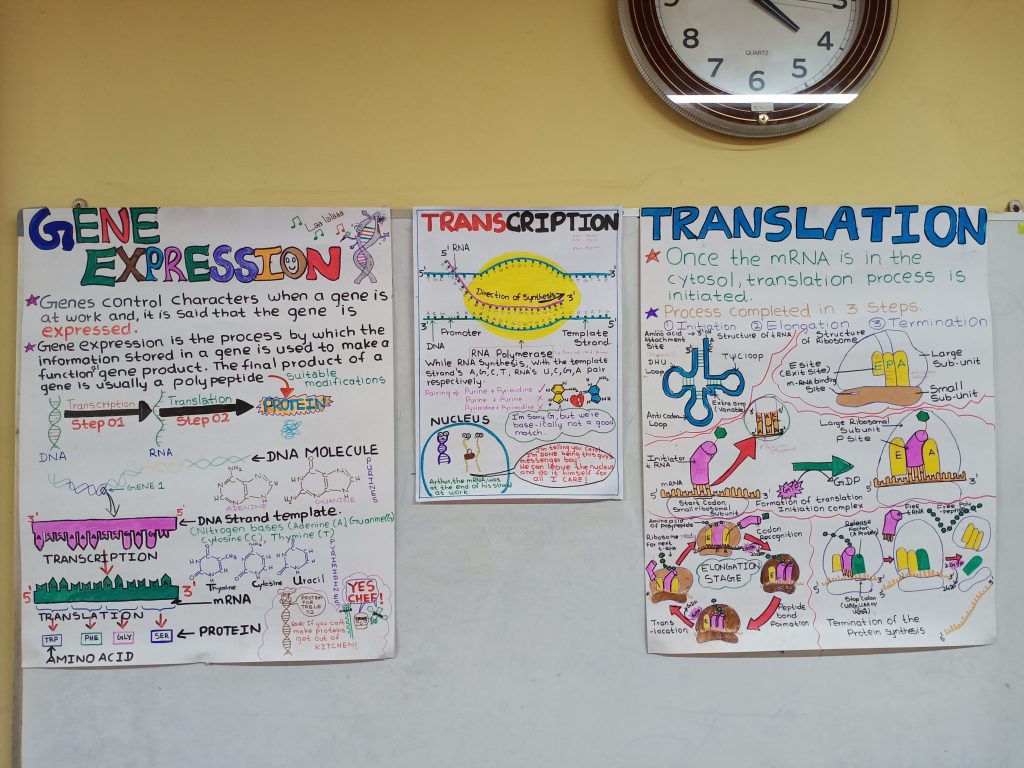 8
4
7
5
6
QUARTZ
GENE
EXPRESSION
Laa lalaaa
Genes control characters when a gene is
at work and, it is said that the gene is
expressed.
Gene expression is the process by which the
information stored in a gene is used to make a
functional gene product. The final product of a
gene is usually a polypeptide
Suitable
modifications
Transcription
Step 01
Translation
Step 02
PROTEIN
DNA
RNA
DNA MOLECULE
GENE 1
ADENINE
GUANINE
PURINES
3'
5'
DNA Strand template.
(Nitrogen bases (Adenine (A) Guanine(G)
Cytosine (C), Thymine (T)
TRANSCRIPTION
Thymine
Cytosine
Uracil
PYRIMIDINES
5'
3'
mRNA
TRANSLATION
TRP
PHE
GLY
SER
PROTEIN
AMINO ACID
PROTEIN
FOR
TABLE
02
If you can't
make proteins
get out of
KITCHEN!
YES
CHEF!
TRANSCRIPTION
5' RNA
5'
3'
Direction of Synthesis
3'
DNA
5'
Promoter
Template
Strand.
RNA Polymerase
While RNA Synthesis, with the template
Strand's A,G,C,T, RNA's U,C,G,A pair
respectively.
Pairing of Purine + Pyrimidine
Purine + Purine
Pyrimidine + Pyrimidine
I'm Sorry G, but we're
base-ically not a good
match.
NUCLEUS
I'm telling you Carol,
I'm DONE being this guy's
messenger boy!
He can leave the nucleus
and do it himself for
all I CARE!
Arthur, the mRNA, was
at the end of his strand
at work.
TRANSLATION
Once the mRNA is in the
cytosol, translation process is
initiated.
Process completed in 3 Steps.
① Initiation ② Elongation ③ Termination
Amino acid
Attachment
Site
3'
5'
Structure of tRNA
DHU
Loop
TΨC loop
Extra arm
(Variable)
Anti Codon
Loop
Structure
of Ribosome
E site
(Exit Site)
m-RNA binding
Site
E P A
Large
Sub-unit
Small
Sub-Unit
Initiator
t RNA
mRNA
5'
3'
Start Codon
Small ribosomal
Subunit
GTP
GDP
Formation of translation
Initiation complex
Large Ribosomal
Subunit
P Site
E
A
5'
3'
Amino acid
of Polypeptide
Ribosome
for next
t-RNA
Codon
Recognition
ELONGATION
STAGE
Peptide
bond
Formation
Trans
-location
Release
Factor
(a Protein)
Free
t-RNA
Free
Polypeptide
Stop Codon
5'
3'
Termination of the
Protein synthesis